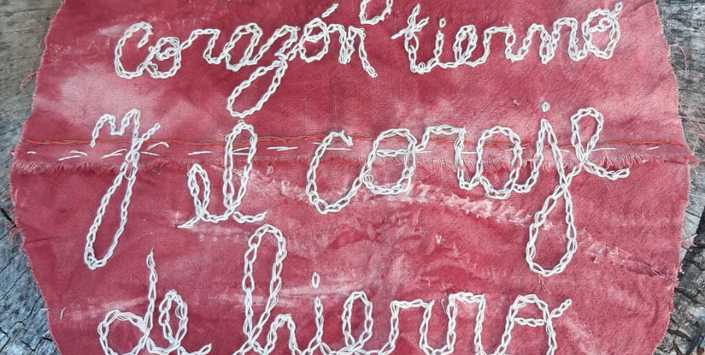 corazón tierno
y el coraje
de hierro